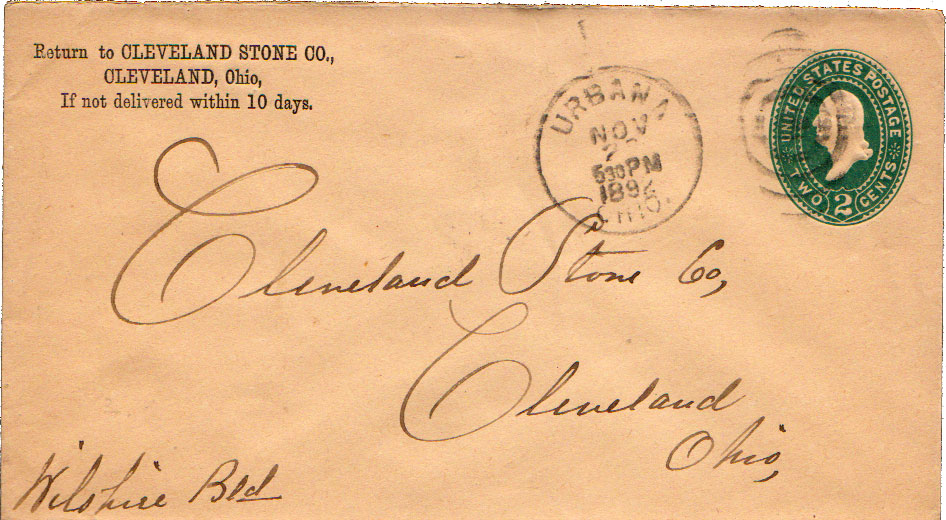 Return to CLEVELAND STONE CO.,
CLEVELAND, Ohio,
If not delivered within 10 days.
URBANA
NOV
530PM
1892
OHIO.
UNITED STATES POSTAGE
TWO 2 CENTS
Cleveland Stone Co,
Cleveland
Ohio,
Wilshire Bld